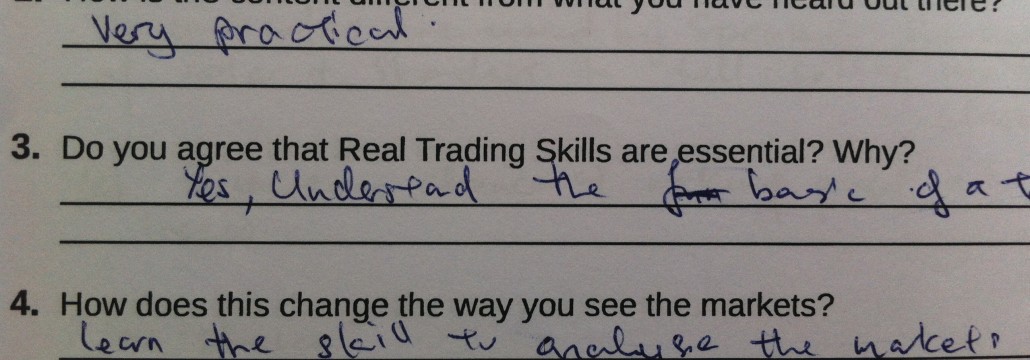 2. How is the content different from what you have heard out there?
Very practical.
3. Do you agree that Real Trading Skills are essential? Why?
Yes, Understand the basic of a t
4. How does this change the way you see the markets?
Learn the skill to analyse the markets